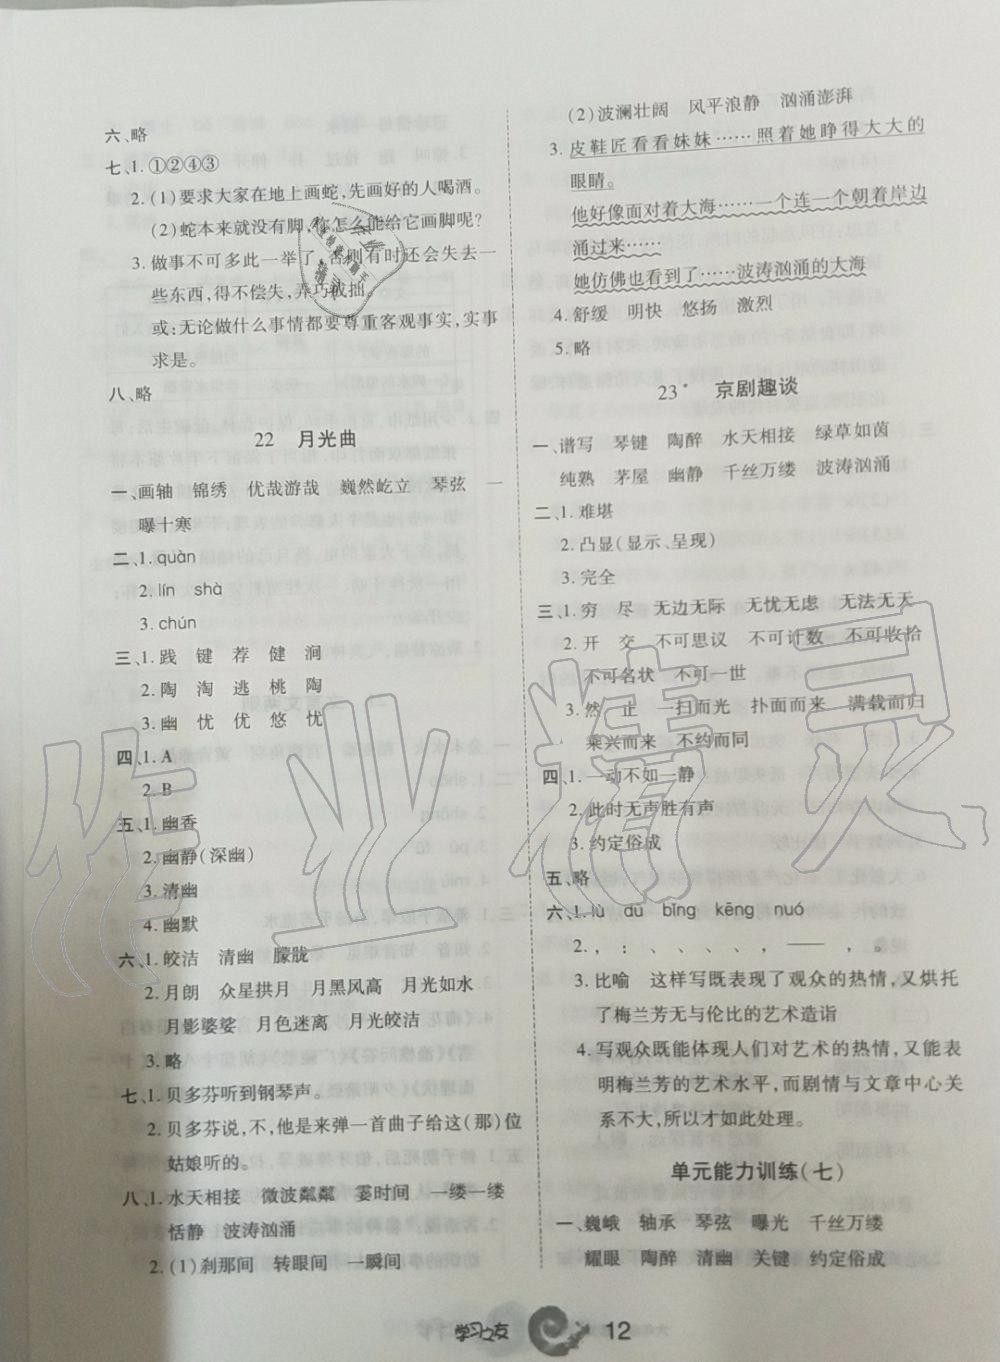 六、略
七、1. ①②④③
2. (1)要求大家在地上画蛇,先画好的人喝酒。
(2)蛇本来就没有脚,你怎么能给它画脚呢?
3. 做事不可多此一举了,否则有时还会失去一
些东西,得不偿失,弄巧成拙。
或:无论做什么事情都要尊重客观事实,实事
求是。
八、略
22 月光曲
一、画轴 锦绣 优哉游哉 巍然屹立 琴弦 一
曝十寒
二、1. quàn
2. lín shà
3. chún
三、1. 践 键 荐 健 涧
2. 陶 淘 逃 桃 陶
3. 幽 忧 优 悠 忧
四、1. A
2. B
五、1. 幽香
2. 幽静(深幽)
3. 清幽
4. 幽默
六、1. 皎洁 清幽 朦胧
2. 月朗 众星拱月 月黑风高 月光如水
月影婆娑 月色迷离 月光皎洁
3. 略
七、1. 贝多芬听到钢琴声。
2. 贝多芬说,不,他是来弹一首曲子给这(那)位
姑娘听的。
八、1. 水天相接 微波粼粼 霎时间 一缕一缕
恬静 波涛汹涌
2. (1)刹那间 转眼间 一瞬间
(2)波澜壮阔 风平浪静 汹涌澎湃
3. 皮鞋匠看看妹妹……照着她睁得大大的
眼睛。
他好像面对着大海……一个连一个朝着岸边
涌过来……
她仿佛也看到了……波涛汹涌的大海
4. 舒缓 明快 悠扬 激烈
5. 略
23* 京剧趣谈
一、谱写 琴键 陶醉 水天相接 绿草如茵
纯熟 茅屋 幽静 千丝万缕 波涛汹涌
二、1. 难堪
2. 凸显(显示、呈现)
3. 完全
三、1. 穷 尽 无边无际 无忧无虑 无法无天
2. 开 交 不可思议 不可计数 不可收拾
不可名状 不可一世
3. 然 止 一扫而光 扑面而来 满载而归
乘兴而来 不约而同
四、1. 一动不如一静
2. 此时无声胜有声
3. 约定俗成
五、略
六、1. lù dū bǐng kēng nuó
2. , : 、 、 、 , —— , 。
3. 比喻 这样写既表现了观众的热情,又烘托
了梅兰芳无与伦比的艺术造诣
4. 写观众既能体现人们对艺术的热情,又能表
明梅兰芳的艺术水平,而剧情与文章中心关
系不大,所以才如此处理。
单元能力训练(七)
一、巍峨 轴承 琴弦 曝光 千丝万缕
耀眼 陶醉 清幽 关键 约定俗成
学习之友 12
作业精灵